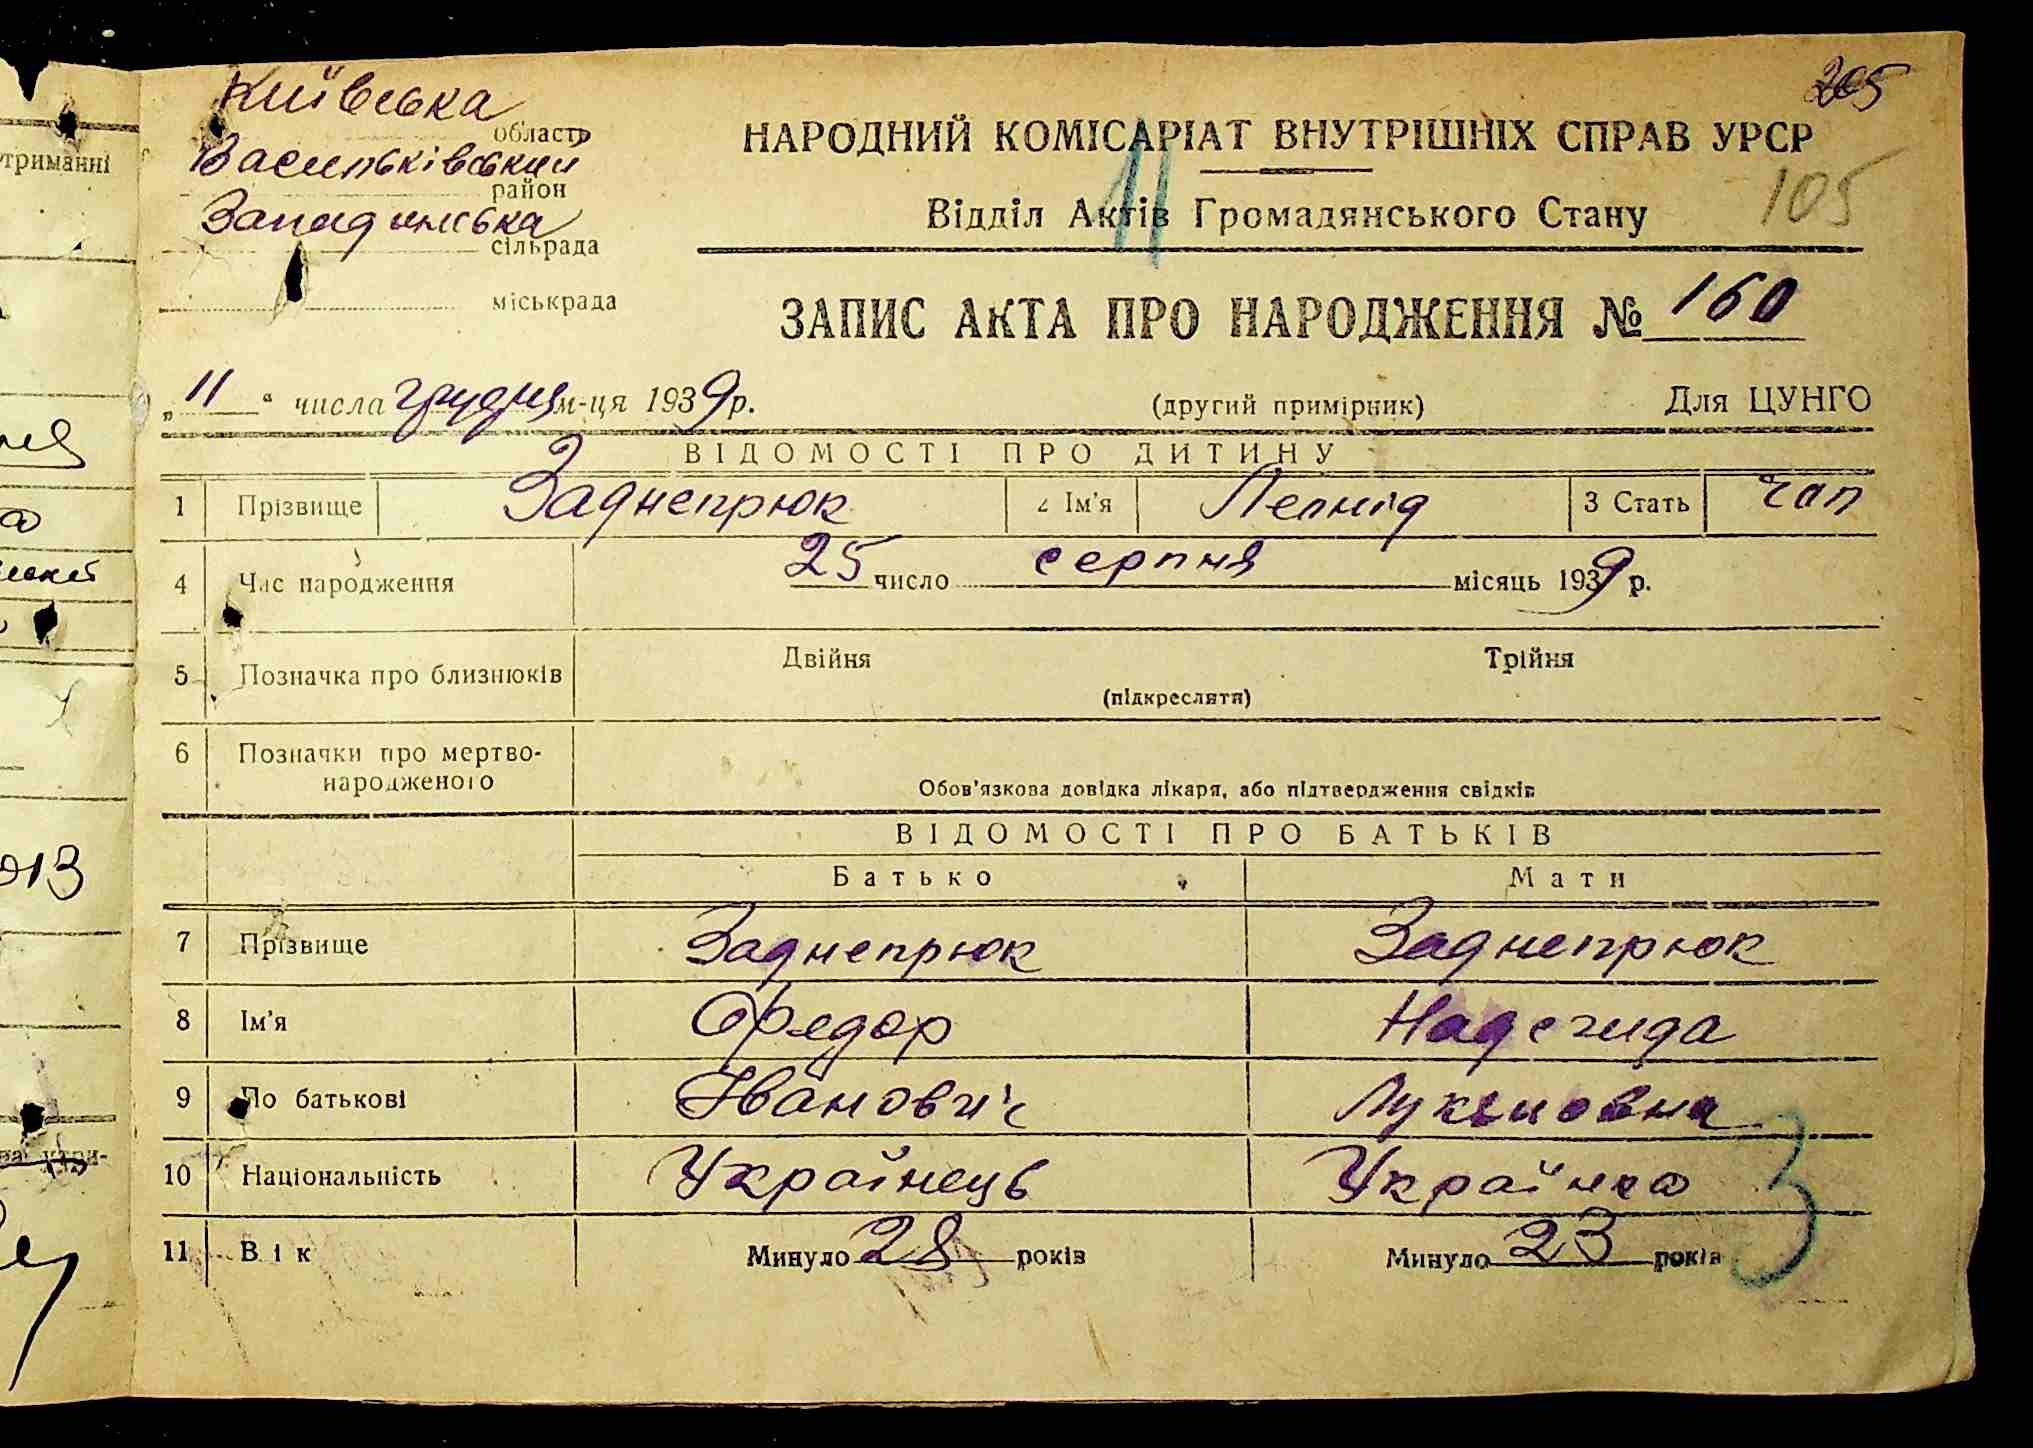 Київська
область
Васильківський
район
Западинська
сільрада
міськрада
205
НАРОДНИЙ КОМІСАРІАТ ВНУТРІШНІХ СПРАВ УРСР
11
105
Відділ Актів Громадянського Стану
ЗАПИС АКТА ПРО НАРОДЖЕННЯ № 160
„11“ числа грудня м-ця 1939 р. (другий примірник) Для ЦУНГО
ВІДОМОСТІ ПРО ДИТИНУ
1 Прізвище Заднепрюк 2 Ім'я Леонід 3 Стать чол
4 Час народження 25 число серпня місяць 1939 р.
5 Позначка про близнюків Двійня Трійня
(підкреслити)
6 Позначки про мертво-
народженого
Обов'язкова довідка лікаря, або підтвердження свідків
ВІДОМОСТІ ПРО БАТЬКІВ
Батько Мати
7 Прізвище Заднепрюк Заднепрюк
8 Ім'я Федор Надежида
9 По батькові Іванович Лукиновна
10 Національність Українець Українка
11 Вік Минуло 28 років Минуло 23 років
3
триманні
913